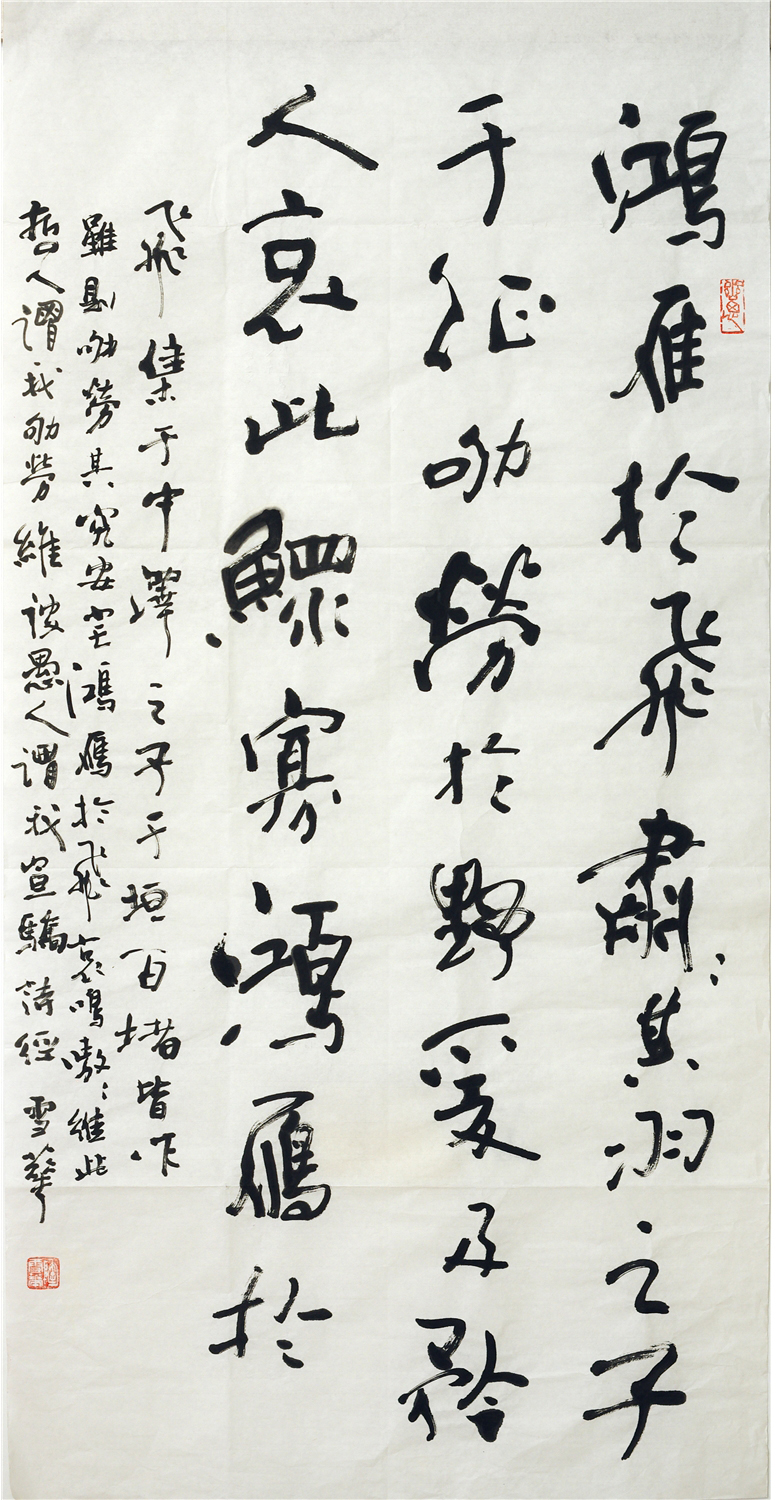 鴻雁於飛肅〻其羽之子
于征劬勞於野爰及矜
人哀此鰥寡鴻鴈於
飛集于中澤之子于垣百堵皆作
雖則劬勞其究安宅鴻鴈於飛哀鳴嗷〻維此
哲人謂我劬勞維彼愚人謂我宣驕詩經 雪華